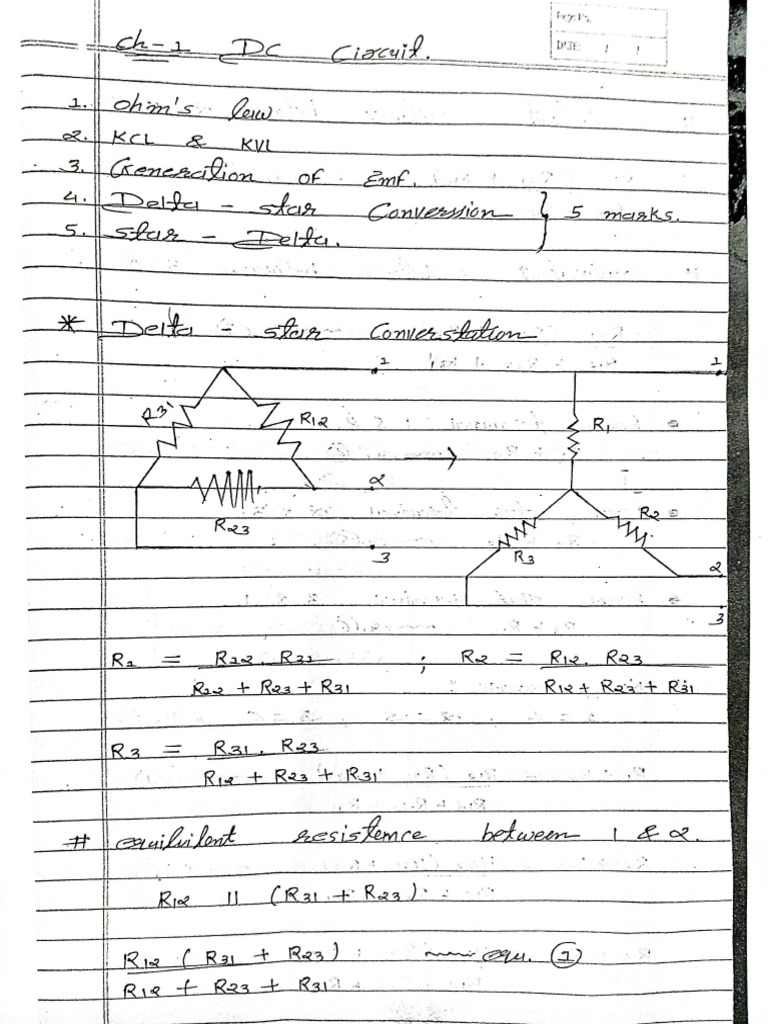 Page No.
DATE: / /
Ch-1 DC Circuit.
1. Ohm's law
2. KCL & KVL
3. Generation of Emf.
4. Delta - star Conversion } 5 marks.
5. star - Delta.
* Delta - star Converstation
1 1
R31 R12 R1
→
2
R23 R2
3 R3
2
3
R1 = R12. R31 / R12 + R23 + R31 ; R2 = R12. R23 / R12 + R23 + R31
R3 = R31. R23 / R12 + R23 + R31
# equilvilent resistence between 1 & 2.
R12 || (R31 + R23).
R12 ( R31 + R23 ) / R12 + R23 + R31 equ. ①